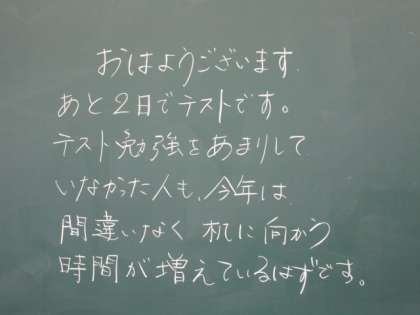 おはようございます.
あと2日でテストです。
テスト勉強をあまりして
いなかった人も、今年は
間違いなく 机に 向かう
時間が増えているはずです。